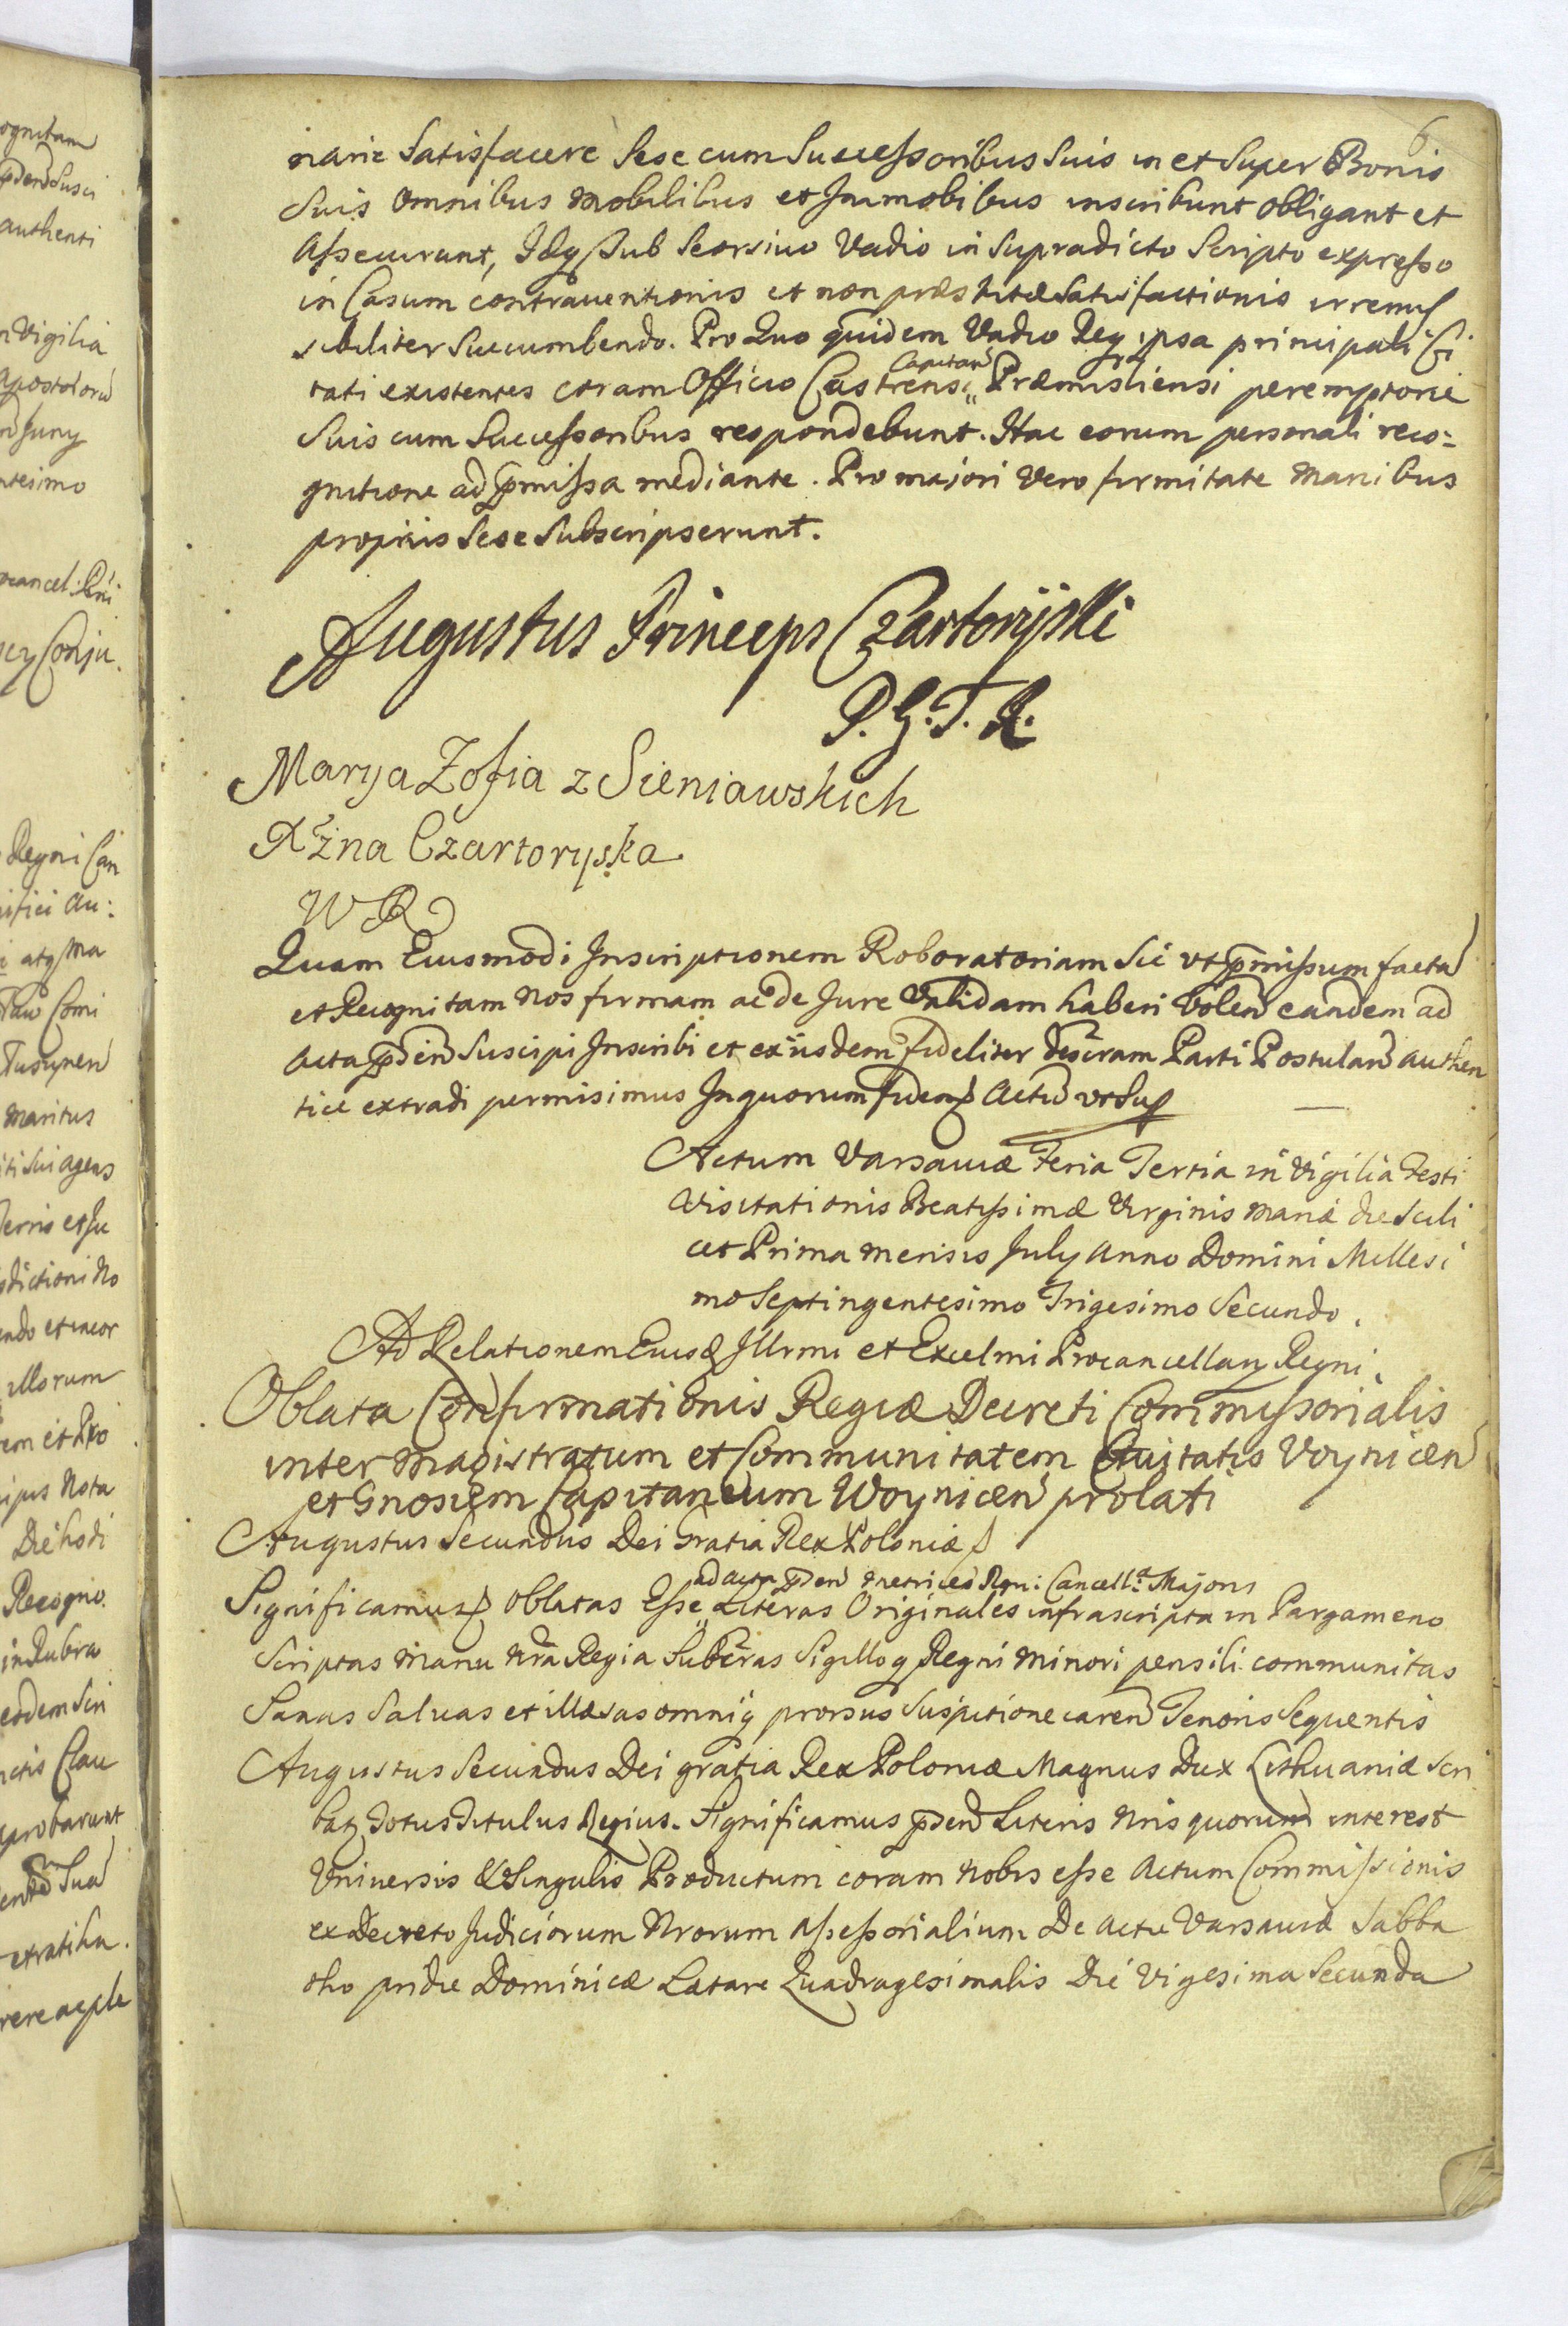 6
narie Satisfacere Sese cum Successoribus Suis in et Super Bonis
Suis Omnibus Mobilibus et Immobibus inscribunt obligant et
Assecurant, Idq Sub Seorsivo Vadio in Supradicto Scripto expresso
in Casum contraventionis et non præstitæ Satisfactionis irremis
sibiliter Succumbendo. Pro Quo quidem Vadio Req ipsa principali Ci
tati existentes coram Officio Castrensi Capitan Præmisliensi peremptorie
Suis cum Successoribus respondebunt. Hac eorum personali reco=
gnitione ad pmissa mediante. Pro majori Vero firmitate Manibus
proprijs Sese Subscripserunt.
Augustus Princeps Czartoryski
P. G. T. R.
Marya Zofia z Sieniawskich
Xżna Czartoryska
WR
Quam Eiusmodi Inscriptionem Roboratoriam Sic vt pmissum facta
et Recognitam Nos firmam ac de Jure Validam haberi Volen eandem ad
Acta pden Suscipi Inscribi et ex ijsdem fideliter descram Parti Postulan authen
tice extradi permisimus In quorum fidem Actu vt Sup
Actum Varsaviæ Feria Tertia in Vigilia Festi
Visitationis Beatissimæ Virginis Mariæ die Scili
cet Prima Mensis July Anno Domini Millesi
mo Septingentesimo Trigesimo Secundo.
Ad Relationem Eiusd Illrmi et Excelmi Procancellary Regni
Oblata Confirmationis Regiæ Decreti Commissorialis
inter Magistratum et Communitatem Civitatis Voynicen
et Gnosum Capitaneum Woynicen prolati
Augustus Secundus Dei Gratia Rex Poloniæ
Significamus Oblatas Esse ad acta pden Metrices Regni Cancell Majoris Literas Originales infrascripta in Pargameno
Scriptas Manu Nra Regia Subcras Sigilloq Regni Minori pensili communitas
Sanas Salvas et illæsas omniq prorsus Suspitione caren Tenoris Sequentis
Augustus Secundus Dei gratia Rex Poloniæ Magnus Dux Lithuaniæ Scri
batz Totus Titulus Regius. Significamus pden Literis Nris quorum interest
Vniversis & Singulis Productum coram Nobis esse Actum Commissionis
ex Decreto Judiciorum Nrorum Assessorialium De Actu Varsaviæ Sabba
tho pridie Dominicæ Lætare Quadragesimalis Die Vigesima Secunda